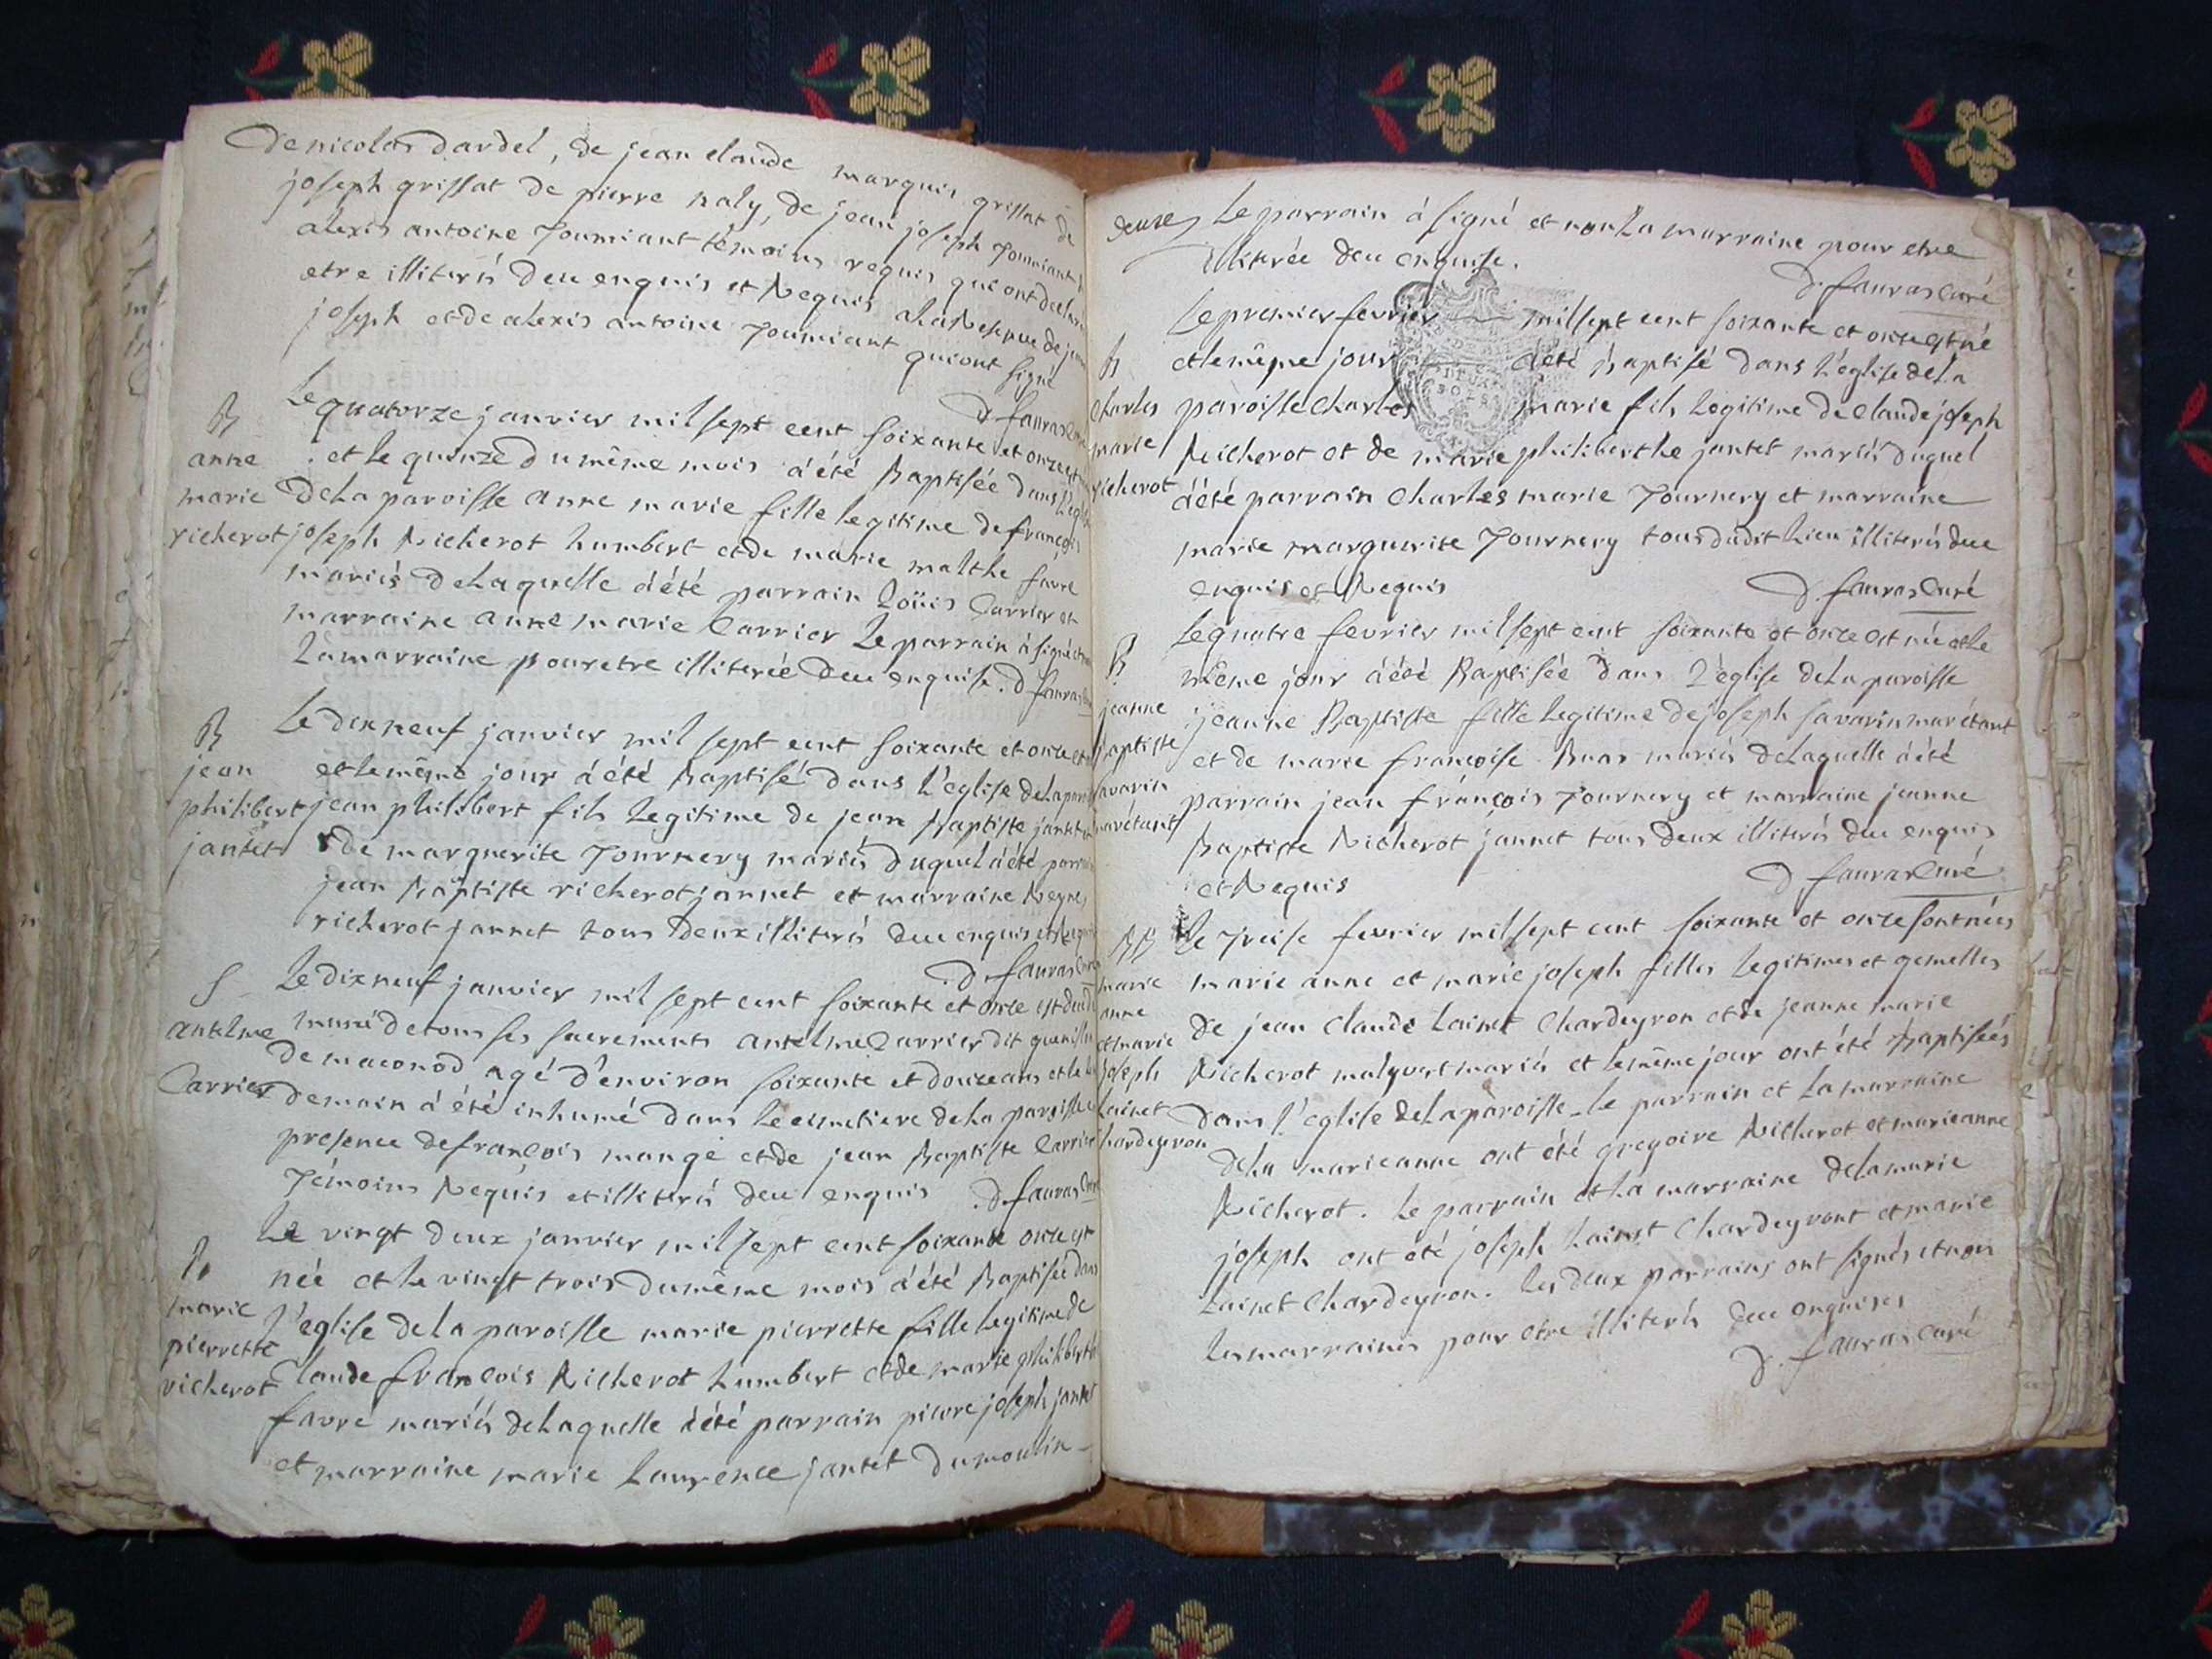 De nicolas Dardel, de jean claude marquis grissat de
joseph grissat de pierre naly, de jean joseph Joumiant
alexis antoine Joumiant témoins requis qui ont declaré
etre illiterés deu enquis et Requis a la Reserve de jean
joseph et de alexis antoine Joumiant qui ont signé
D. fauras Curé
Le quatorze janvier mil sept cent soixante et onze est
B
anne
marie
richerot
et le quinze du même mois à été Baptisée dans l'eglise
de La paroisse anne marie fille legitime de françois
joseph Richerot humbert et de marie malthe favre
mariés de Laquelle à été parrain Loüis Carrier et
marraine anne marie Carrier Le parrain à signé et non
La marraine pour etre illiterée deu enquise. D. fauras
Le dix neuf janvier mil sept cent soixante et onze est né
B
jean
philibert
jantet
et le même jour à été Baptisé dans l'eglise de La paroisse
jean philibert fils Legitime de jean Baptiste jantet et
de marguerite Tournery mariés duquel à été parrain
jean Baptiste richerot jannet et marraine Reyne
richerot jannet tous deux illiterés deu enquis et Requis
D. fauras Curé
Le dix neuf janvier mil sept cent soixante et onze est decedé
S
antelme
Carrier
muni de tous ses sacrements antelme Carrier dit
de maconod agé d'environ soixante et douze ans et le
demain à été inhumé dans le cimetiere de La paroisse
presence de françois mange et de jean Baptiste Carrier
Témoins Requis et illiterés deu enquis D. fauras Curé
Le vingt deux janvier mil sept cent soixante onze est
B
marie
pierrette
richerot
née et le vingt trois du même mois à été Baptisée dans
l'eglise de La paroisse marie pierrette fille Legitime de
Claude françois Richerot humbert et de marie philiberte
favre mariés de Laquelle à été parrain pierre joseph jantet
et marraine marie Laurence jantet dumoulin
Le parrain à signé et non La marraine pour etre
illiterée deu enquise.
D. fauras Curé
Le premier fevrier mil sept cent soixante et onze est né
B
Charles
marie
richerot
et le même jour à été Baptisé dans L'eglise de La
paroisse Charles marie fils Legitime de Claude joseph
Richerot et de marie philiberthe jantet mariés duquel
à été parrain Charles marie Tournery et marraine
marie marguerite Tournery tous dudit Lieu illiterés deu
enquis et Requis D. fauras Curé
Le quatre fevrier mil sept cent soixante et onze est née et Le
B
jeanne
Baptiste
Savarin
marétant
même jour à été Baptisée dans L'eglise de La paroisse
jeanne Baptiste fille Legitime de joseph Savarin marétant
et de marie françoise Buar mariés de Laquelle à été
parrain jean françois Tournery et marraine jeanne
Baptiste Richerot jannet tous deux illiterés deu enquis
et Requis D. fauras Curé
Le Treise fevrier mil sept cent soixante et onze sont nées
BB
marie
anne
et marie
joseph
Lainet
Chardeyron
marie anne et marie joseph filles Legitimes et gemelles
de jean Claude Lainet Chardeyron et de jeanne marie
Richerot malyvert mariés et le même jour ont été Baptisées
Dans l'eglise de La paroisse Le parrain et La marraine
de La marie anne ont été gregoire Richerot et marie anne
Richerot. Le parrain et La marraine de La marie
joseph ont été joseph Lainet Chardeyront et marie
Lainet Chardeyron. Les deux parrains ont signés et non
Les marraines pour etre illiterés deu enquises
D. fauras curé